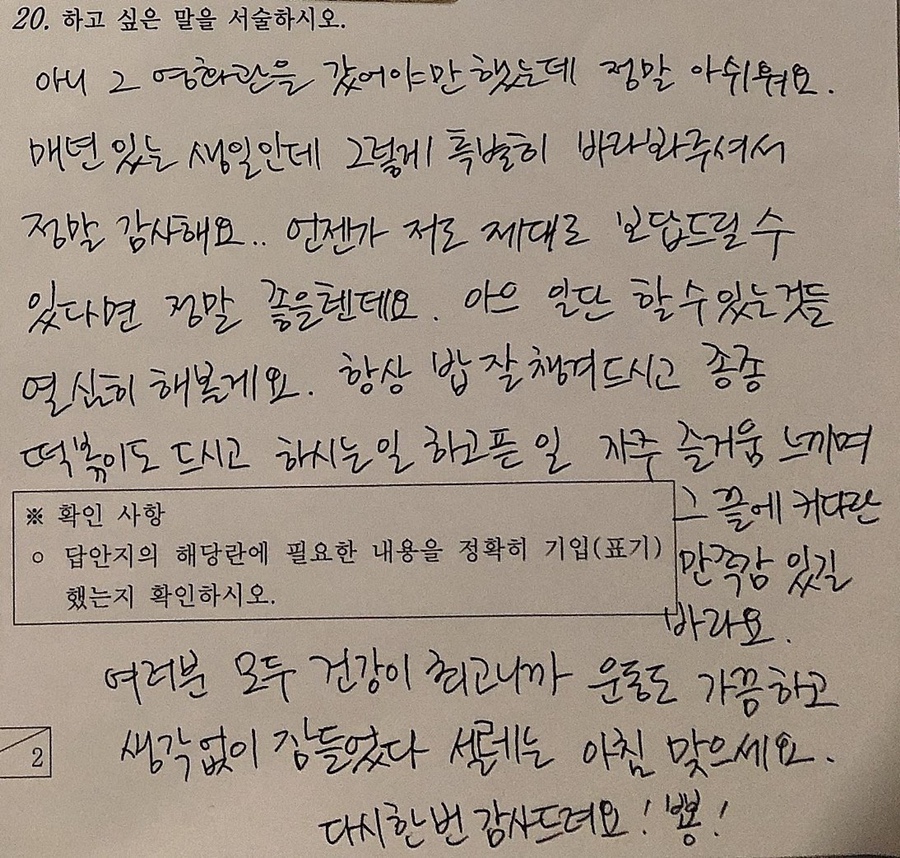 20. 하고 싶은 말을 서술하시오.
아니 그 영화관을 갔어야만 했는데 정말 아쉬워요.
매년 있는 생일인데 그렇게 특별히 바라봐주셔서
정말 감사해요.. 언젠가 저도 제대로 보답드릴 수
있다면 정말 좋을텐데요. 아으 일단 할 수 있는 것들
열심히 해볼게요. 항상 밥 잘 챙겨드시고 종종
떡볶이도 드시고 하시는 일 하고픈 일 자주 즐거움 느끼며
그 끝에 커다란
만족감 있길
바라요.
※ 확인 사항
○ 답안지의 해당란에 필요한 내용을 정확히 기입(표기)
했는지 확인하시오.
여러분 모두 건강이 최고니까 운동도 가끔하고
생각없이 잠들었다 설레는 아침 맞으세요.
2
다시한번 감사드려요! 뿅!